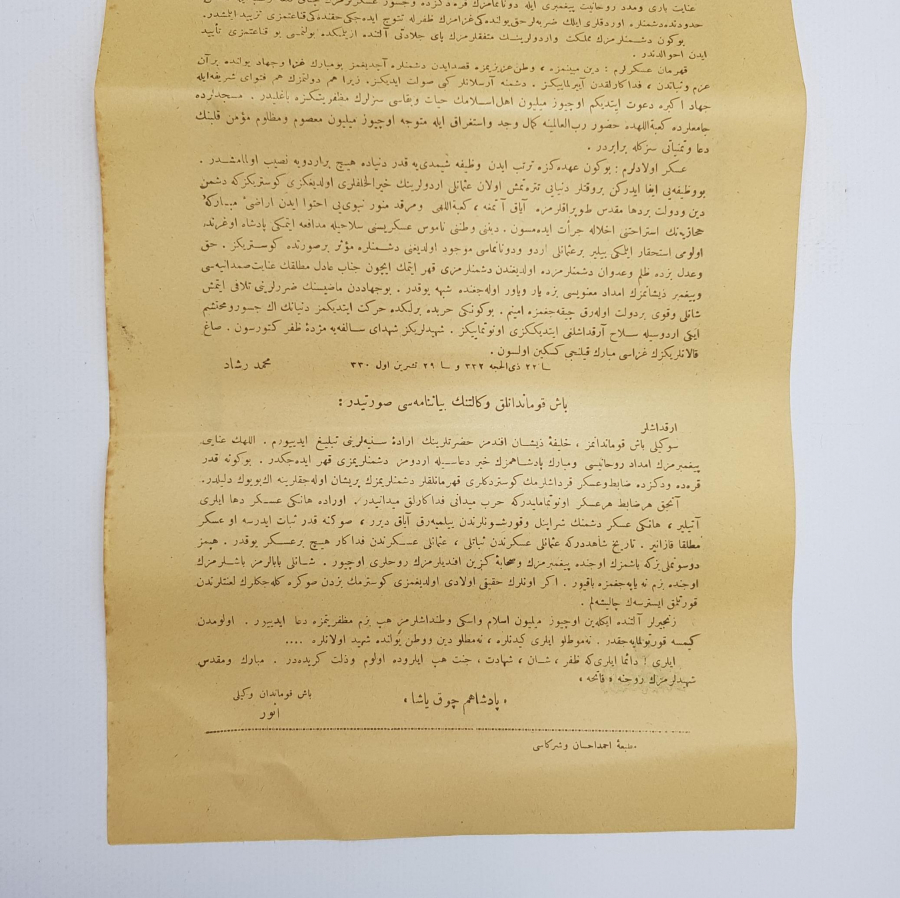 عنايت باری ومدد روحانيت پيغمبری ايله دونانمامزك قره دكزده وجسور عسكرلرمزك
حدودنده دشمنلره اوردقلری ايلك ضربه لرحق يولنده كی غزامزك ظفرله تتوج ايده جكی حقنده كی قناعتمزی تزييد ايلشدر.
بوكون دشمنلرمزك مملكت واردولرينك متفقلرمزك پای جلادتی آلتنده ازيلمكده بولنمسی بو قناعتمزی تأييد
ايدن احوالدندر .
قهرمان عسكرلرم : دين مبينمزه ، وطن عزيزيمزه قصدايدن دشمنلره آچديغمز بومبارك غزا وجهاد يولنده برآن
عزم وثباتدن ، فداكارلقدن آيرلمايیكز. دشمنه آرسلانلر كبی صولت ايديكز. زيرا هم دولتمزك هم فتوای شريفه ايله
جهاد اكبره دعوت ايتديكم اوچيوز ميليون اهل اسلامك حيات وبقاسی سزلرك مظفريتكزه باغليدر . مسجدلرده
جامعلرده كعبة اللهده حضور رب العالمينه كمال وجد واستغراق ايله متوجه اوچيوز ميليون معصوم ومظلوم مؤمن قلبنك
دعا وتمنياتی سزكله برابردر .
عسكر اولادلرم : بوكون عهده كزه ترتب ايدن وظيفه شيمدی يه قدر دنياده هيچ براردويه نصيب اولمامشدر .
بووظيفه يی ايفا ايدركن بروقتلر دنيايی تتره تمش اولان عثمانلی اردولرينك خيرالخلفلری اولديغكزی كوستريكزكه دشمن
دين ودولت بردها مقدس طوپراقلرمزه آياق آتمغه ، كعبة اللهی ومرقد منور نبوی يی احتوا ايدن اراضئ مباركهٔ
حجازيه نك استراحتنی اخلاله جرأت ايده مسون . دينی وطنی ناموس عسكريسنی سلاحيله مدافعه ايتمكی پادشاه اوغرنده
اولومی استحقار ايتمكی بيلير برعثمانلی اردو ودونانماسی موجود اولديغنی دشمنلره مؤثر برصورتده كوستريكز . حق
وعدل بزده ظلم وعدوان دشمنلرمزده اولديغندن دشمنلرمزی قهر ايتمك ايچون جناب عادل مطلقك عنايت صمدانيه سی
وپيغمبر ذيشانمزك امداد معنويسی بزه يار وياور اوله جغنده شبهه يوقدر . بوجهاددن ماضيسنك ضررلرينی تلافی ايتمش
شانلی وقوی بردولت اوله رق چيقه جغمزه امينم . بوكونكی حربده برلكده حركت ايتديكمز دنيانك اك جسور ومحتشم
ايكی اردوسيله سلاح آرقداشلغی ايتديككزی اونوتمايیكز . شهيدلريكز شهدای سالفه يه مژدهٔ ظفر كتورسون . صاغ
قالانلريكزك غزاسی مبارك قيلنجی كسكين اولسون .
سا ٢٢ ذی الحجه ٣٣٢ و سا ٢٩ تشرين اول ٣٣٠
محمد رشاد
باش قوماندانلق وكالتنك بياننامه سی صورتيدر :
ارقداشلر
سوكيلی باش قوماندانمز ، خليفهٔ ذيشان افندمز حضرتلرينك ارادهٔ سنيه لرينی تبليغ ايدييورم . اللهك عنايتی
پيغمبرمزك امداد روحانيسی ومبارك پادشاهمزك خير دعاسيله اردومز دشمنلريمزی قهر ايده جكدر . بوكونه قدر
قره ده ودكزده ضابط وعسكر قرداشلرمك كوستردكلری قهرمانلقلر دشمنلريمزك پريشان اوله جقلرينه اك بويوك دليلدر.
آنجق هر ضابط هر عسكر اونوتمامليدركه حرب ميدانی فداكارلق ميدانيدر . اوراده هانكی عسكر دها ايلری
آتيلير ، هانكی عسكر دشمنك شراپنل وقورشونلرندن ييلميه رق آياق ديرر ، صوكنه قدر ثبات ايدرسه او عسكر
مطلقا قازانير . تاريخ شاهددركه عثمانلی عسكرندن ثباتلی ، عثمانلی عسكرندن فداكار هيچ برعسكر يوقدر . هپمز
دوشونملی يزكه باشمزك اوجنده پيغمبرمزك وصحابهٔ كزين افنديلرمزك روحلری اوچيور . شانلی بابالرمز باشلرمزك
اوجنده بزم نه ياپه جغمزه باقيور . اكر اونلرك حقيقی اولادی اولديغمزی كوسترمك بزدن صوكره كله جكلرك لعنتلرندن
قورتلمق ايسترسه ك چاليشه لم .
زنجيرلر آلتنده ايكله ين اوچيوز ميليون اسلام واسكی وطنداشلرمز هپ بزم مظفريتمزه دعا ايدييور . اولومدن
كيمسه قورتولمايه جقدر . نه موطلو ايلری كيدنلره ، نه مطلو دين ووطن يولنده شهيد اولانلره ....
ايلری ! دائما ايلری كه ظفر ، شان ، شهادت ، جنت هپ ايلروده اولوم وذلت كريده در . مبارك ومقدس
شهيدلرمزك روحنه « فاتحه »
« پادشاهم چوق ياشا »
باش قوماندان وكيلی
انور
مطبعهٔ احمد احسان وشركاسی